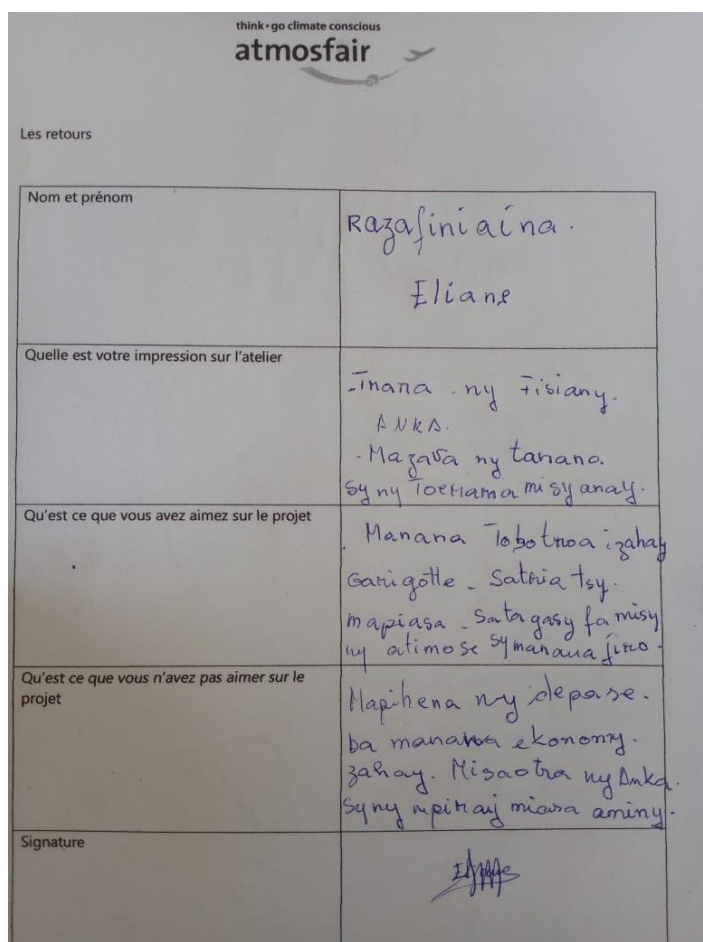 think • go climate conscious
atmosfair
Les retours
Nom et prénom
Razafiniaina.
Eliane
Quelle est votre impression sur l'atelier
-Tnara ny Fisiany.
ANKA.
- Mazava ny tanana.
sy ny Toerana misy anay.
Qu'est ce que vous avez aimez sur le projet
. Manana Tobotnoa izahay
Garigotte - Satria tsy.
mapiasa - Satagasy fa misy
ny atimose sy manana jiro.
Qu'est ce que vous n'avez pas aimer sur le
projet
Mapihena ny depase.
ba manana ekonomy.
zahay. Misaotra ny Anka.
sy ny mpiraij miasa aminy.
Signature